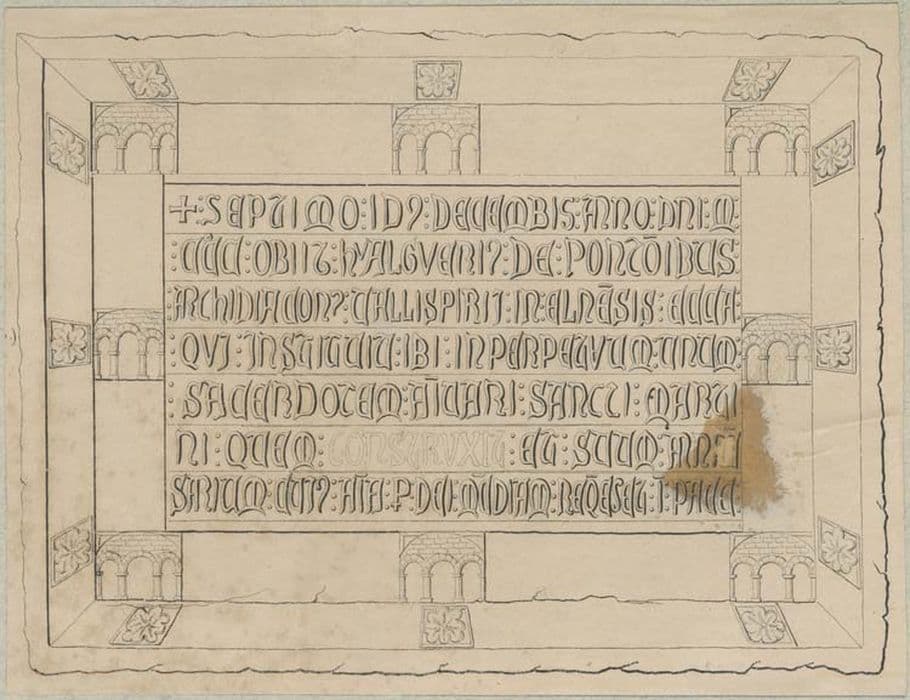 +:SEPTIMO:ID9:DECEMBIS:ANNO:DNI:M:
:CCC:OBIIT:hVALGVERI9:DE:PONTŌIBUS
ARChIDIACON9:VALLISPIRII:IN:ELNĒSIS:ECCA:
:QVI:INSTITUIT:IBI:INPERPETVUM:UNUM
:SACERDOTEM:ALTARI:SANCTI:MARTI
NI:QUEM:CONSTRVXIT:ET:SUUM:ANNI
SARIUM:CUI9:AĪA:P:DEI:MĪDIAM:REQESCT:I:PACE: